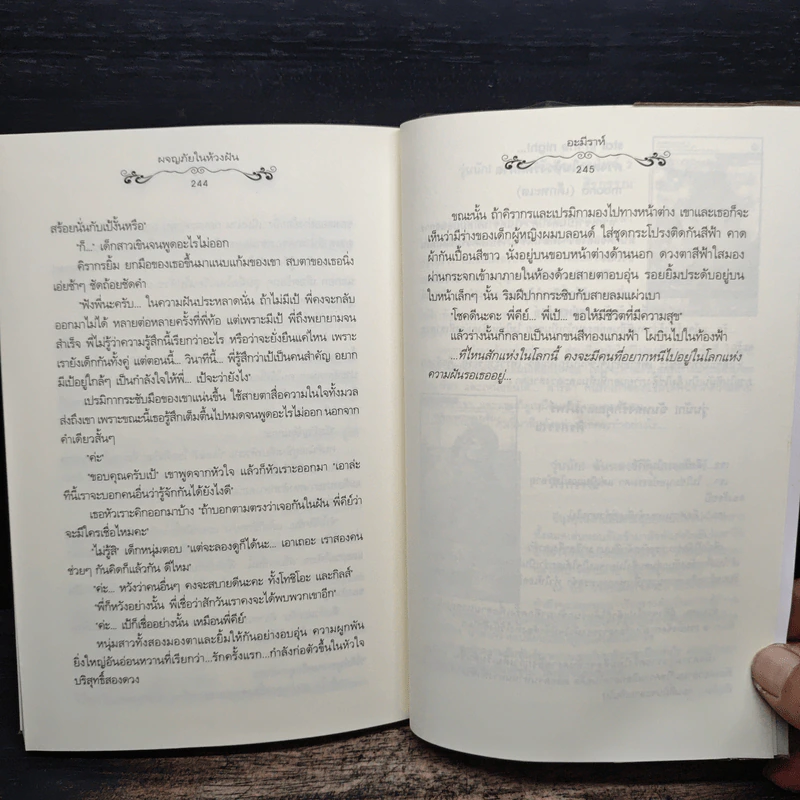 ผจญภัยในห้วงฝัน
244
สร้อยนั่นกับเป้งั้นหรือ"
"ก็..." เด็กสาวเขินจนพูดอะไรไม่ออก
คิรากรยิ้ม ยกมือของเธอขึ้นมาแนบแก้มของเขา สบตาของเธอนิ่ง
เอ่ยช้าๆ ชัดถ้อยชัดคำ
"ฟังพี่นะครับ... ในความฝันประหลาดนั่น ถ้าไม่มีเป้ พี่คงจะกลับ
ออกมาไม่ได้ หลายต่อหลายครั้งที่พี่ท้อ แต่เพราะมีเป้ พี่ถึงพยายามจน
สำเร็จ พี่ไม่รู้ว่าความรู้สึกนี้เรียกว่าอะไร หรือว่าจะยั่งยืนแค่ไหน เพราะ
เรายังเด็กกันทั้งคู่ แต่ตอนนี้... วินาทีนี้... พี่รู้สึกว่าเป้เป็นคนสำคัญ อยาก
มีเป้อยู่ใกล้ๆ เป็นกำลังใจให้พี่... เป้จะว่ายังไง"
เปรมิกากระชับมือของเขาแน่นขึ้น ใช้สายตาสื่อความในใจทั้งมวล
ส่งถึงเขา เพราะขณะนี้เธอรู้สึกเต็มตื้นไปหมดจนพูดอะไรไม่ออก นอกจาก
คำเดียวสั้นๆ
"ค่ะ"
"ขอบคุณครับเป้" เขาพูดจากหัวใจ แล้วก็หัวเราะออกมา "เอาล่ะ
ทีนี้เราจะบอกคนอื่นว่ารู้จักกันได้ยังไงดี"
เธอหัวเราะคิกออกมาบ้าง "ถ้าบอกตามตรงว่าเจอกันในฝัน พี่คีย์ว่า
จะมีใครเชื่อไหมคะ"
"ไม่รู้สิ" เด็กหนุ่มตอบ "แต่จะลองดูก็ได้นะ... เอาเถอะ เราสองคน
ช่วยๆ กันคิดก็แล้วกัน ดีไหม"
"ค่ะ... หวังว่าคนอื่นๆ คงจะสบายดีนะคะ ทั้งโทชิโอะ และกิลส์"
"พี่ก็หวังอย่างนั้น พี่เชื่อว่าสักวันเราคงจะได้พบพวกเขาอีก"
"ค่ะ... เป้ก็เชื่ออย่างนั้น เหมือนพี่คีย์"
หนุ่มสาวทั้งสองมองตาและยิ้มให้กันอย่างอบอุ่น ความผูกพัน
ยิ่งใหญ่อันอ่อนหวานที่เรียกว่า...รักครั้งแรก...กำลังก่อตัวขึ้นในหัวใจ
บริสุทธิ์สองดวง
อะมีราห์
245
ขณะนั้น ถ้าคิรากรและเปรมิกามองไปทางหน้าต่าง เขาและเธอก็จะ
เห็นว่ามีร่างของเด็กผู้หญิงผมบลอนด์ ใส่ชุดกระโปรงติดกันสีฟ้า คาด
ผ้ากันเปื้อนสีขาว นั่งอยู่บนขอบหน้าต่างด้านนอก ดวงตาสีฟ้าใสมอง
ผ่านกระจกเข้ามาภายในห้องด้วยสายตาอบอุ่น รอยยิ้มประดับอยู่บน
ใบหน้าเล็กๆ นั้น ริมฝีปากกระซิบกับสายลมแผ่วเบา
"โชคดีนะคะ พี่คีย์... พี่เป้... ขอให้มีชีวิตที่มีความสุข"
แล้วร่างนั้นก็กลายเป็นนกขนสีทองแกมฟ้า โผบินไปในท้องฟ้า
...ที่ไหนสักแห่งในโลกนี้ คงจะมีคนที่อยากหนีไปอยู่ในโลกแห่ง
ความฝันรอเธออยู่...